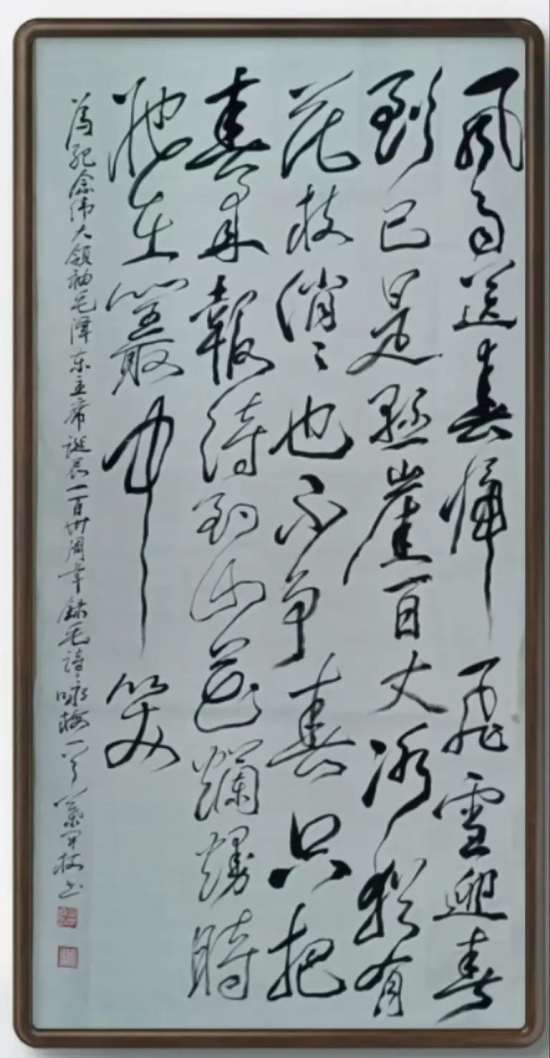 風雨送春歸飛雪迎春
到已是懸崖百丈冰猶有
花枝俏〻也不争春只把
春来報待到山花爛熳時
她在叢中笑
為紀念伟大領袖毛澤东主席诞辰一百卅周年錄毛詩咏梅一首